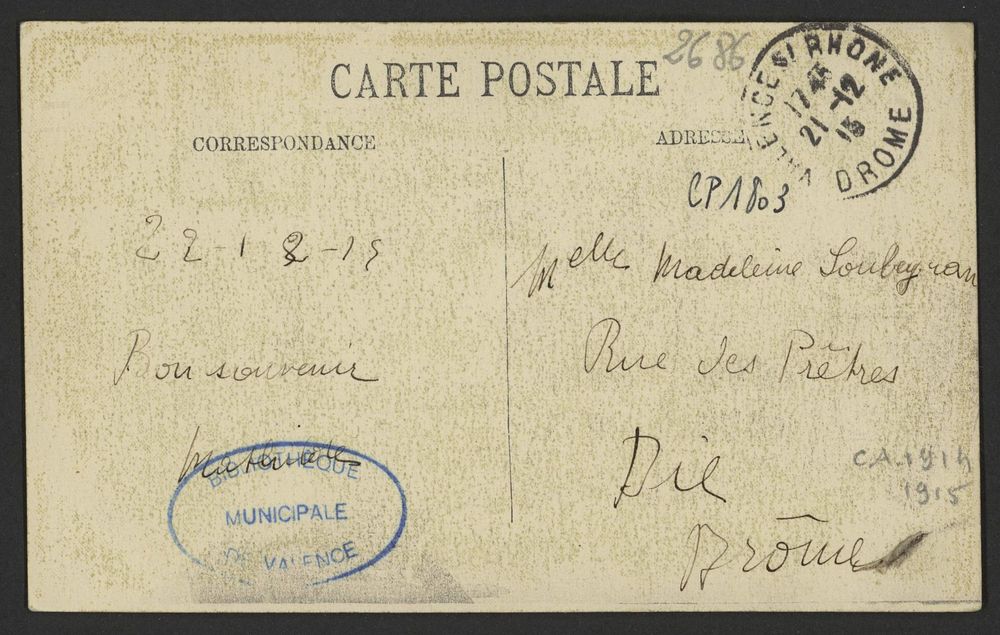 2686
CARTE POSTALE
VALENCE S/ RHONE
17 45
21-12
15
DROME
CORRESPONDANCE
ADRESSE
CP1803
22-12-15
Melle Madeleine Soubeyran
Bon souvenir
Rue des Prêtres
Mathilde
Die
Drôme
BIBLIOTHEQUE
MUNICIPALE
DE VALENCE
CA.1914
1915